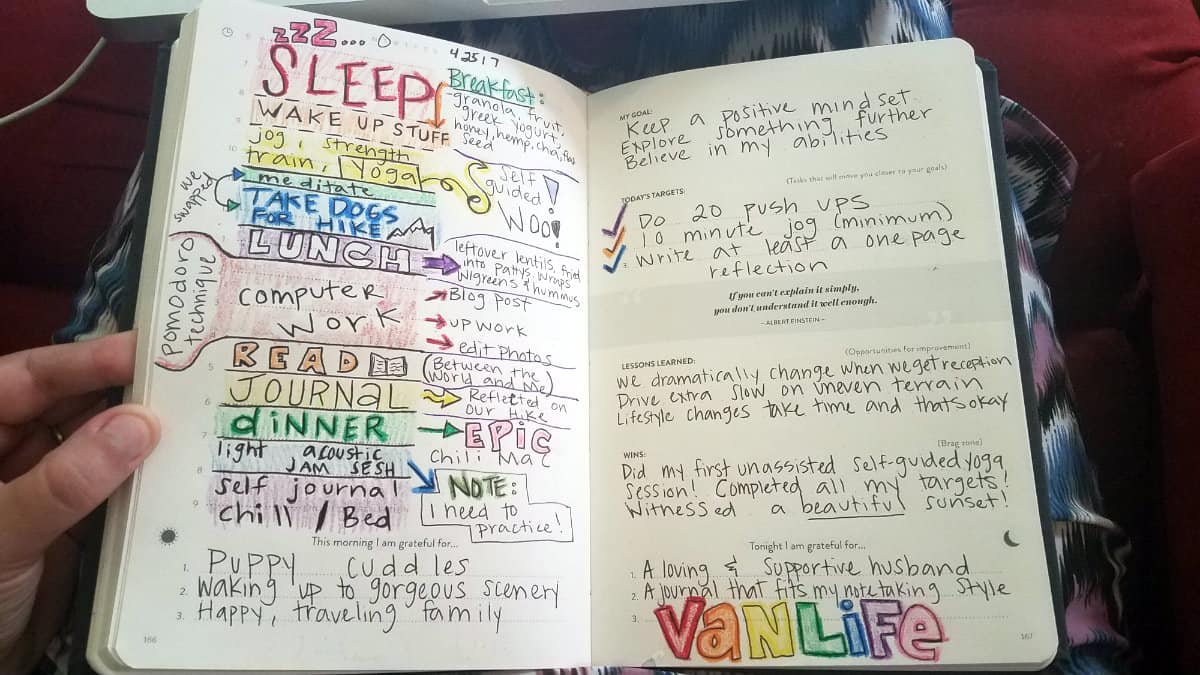 zzz...
4 25 17
SLEEP
WAKE UP STUFF
Breakfast:
-granola, fruit,
greek yogurt,
honey, hemp, chia, flax
seed
jog, strength
train, Yoga
Self
guided
WOO!
meditate
we
swapped
TAKE DOGS
FOR HIKE
LUNCH
leftover lentils, fried
into pattys, wraps
w/greens & hummus
pomodoro
technique
computer
work
Blog post
upwork
edit photos
READ
(Between the
World and Me)
JOURNAL
Reflected on
our Hike
dINNER
EPIC
Chili Mac
light acoustic
JAM SESH
NOTE:
I need to
practice!
Self journal
chill / Bed
This morning I am grateful for...
1. Puppy cuddles
2. Waking up to gorgeous scenery
3. Happy, traveling family
166
MY GOAL:
Keep a positive mind set
Explore something further
Believe in my abilities
(Tasks that will move you closer to your goals)
TODAY'S TARGETS:
Do 20 push ups
10 minute jog (minimum)
3. Write at least a one page
reflection
If you can't explain it simply,
you don't understand it well enough.
– ALBERT EINSTEIN –
(Opportunities for improvement)
LESSONS LEARNED:
we dramatically change when we get reception
Drive extra slow on uneven terrain
Lifestyle changes take time and thats okay
(Brag zone)
WINS:
Did my first unassisted self-guided yoga
Session! Completed all my targets!
Witnessed a beautiful sunset!
Tonight I am grateful for...
1. A loving & supportive husband
2. A journal that fits my notetaking style
3.
VANLiFe
167